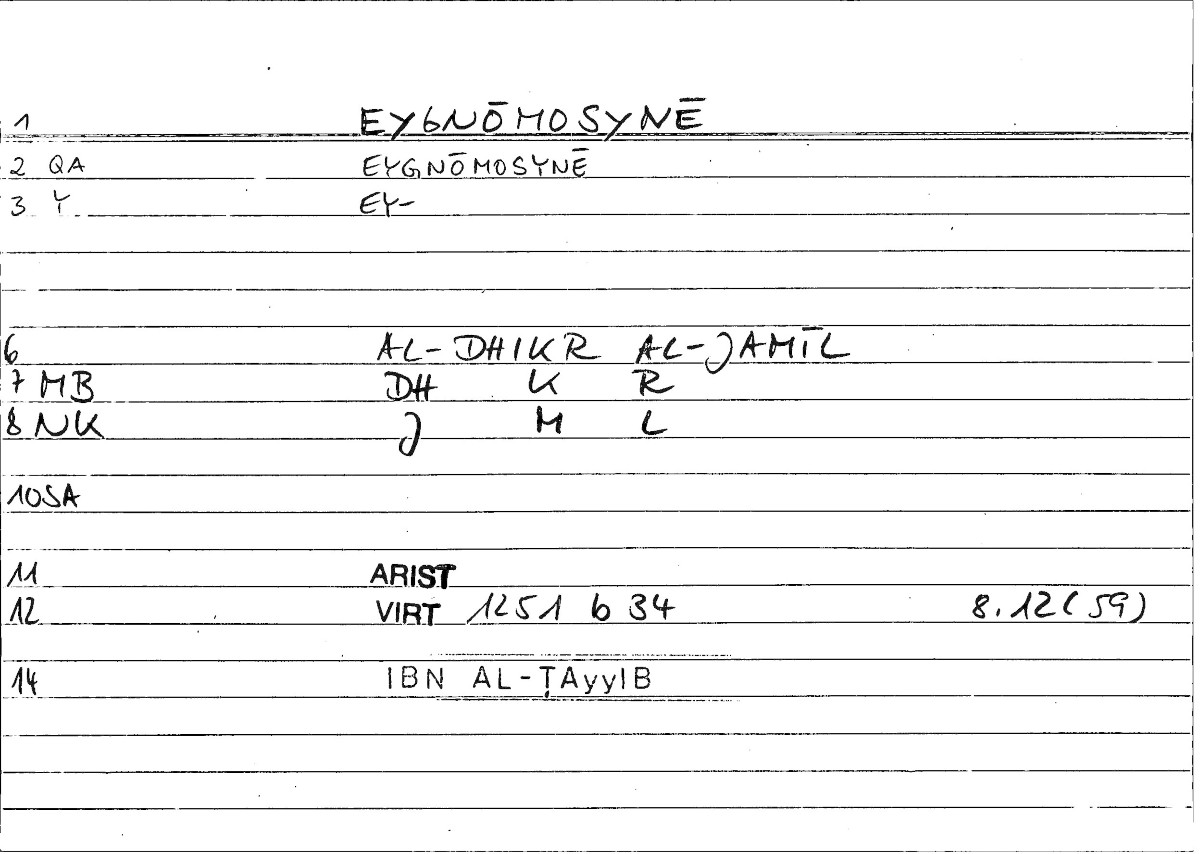 1 EYGNŌMOSYNĒ
2 QA EYGNŌMOSYNĒ
3 Y EY-
6 AL-DHIKR AL-JAMĪL
7 MB DH K R
8 NK J M L
10 SA
11 ARIST
12 VIRT 1251 b 34 8.12 (59)
14 IBN AL-ṬAyyIB